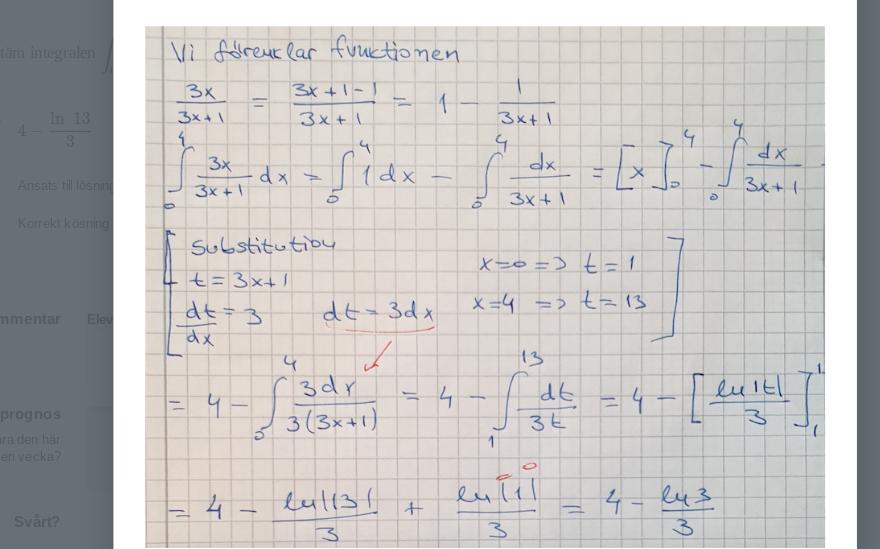 täm integralen ∫
4 − ln 13 / 3
Ansats till lösning
Korrekt kösning
mmentar Elev
prognos
ara den här
en vecka?
Svårt?
Vi förenklar funktionen
3x/(3x+1) = (3x+1-1)/(3x+1) = 1 - 1/(3x+1)
∫₀⁴ 3x/(3x+1) dx = ∫₀⁴ 1 dx - ∫₀⁴ dx/(3x+1) = [x]₀⁴ - ∫₀⁴ dx/(3x+1)
Substitution
t = 3x+1 x=0 => t = 1
dt/dx = 3 dt = 3dx x=4 => t = 13
= 4 - ∫₀⁴ 3dx/(3(3x+1)) = 4 - ∫₁¹³ dt/(3t) = 4 - [ln|t|/3]₁
= 4 - ln|13|/3 + ln|1|/3 = 4 - ln3/3
= 0